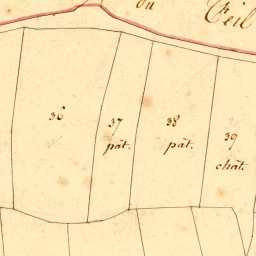 du
Teil
36
37
pât.
38
pât.
39
chât.